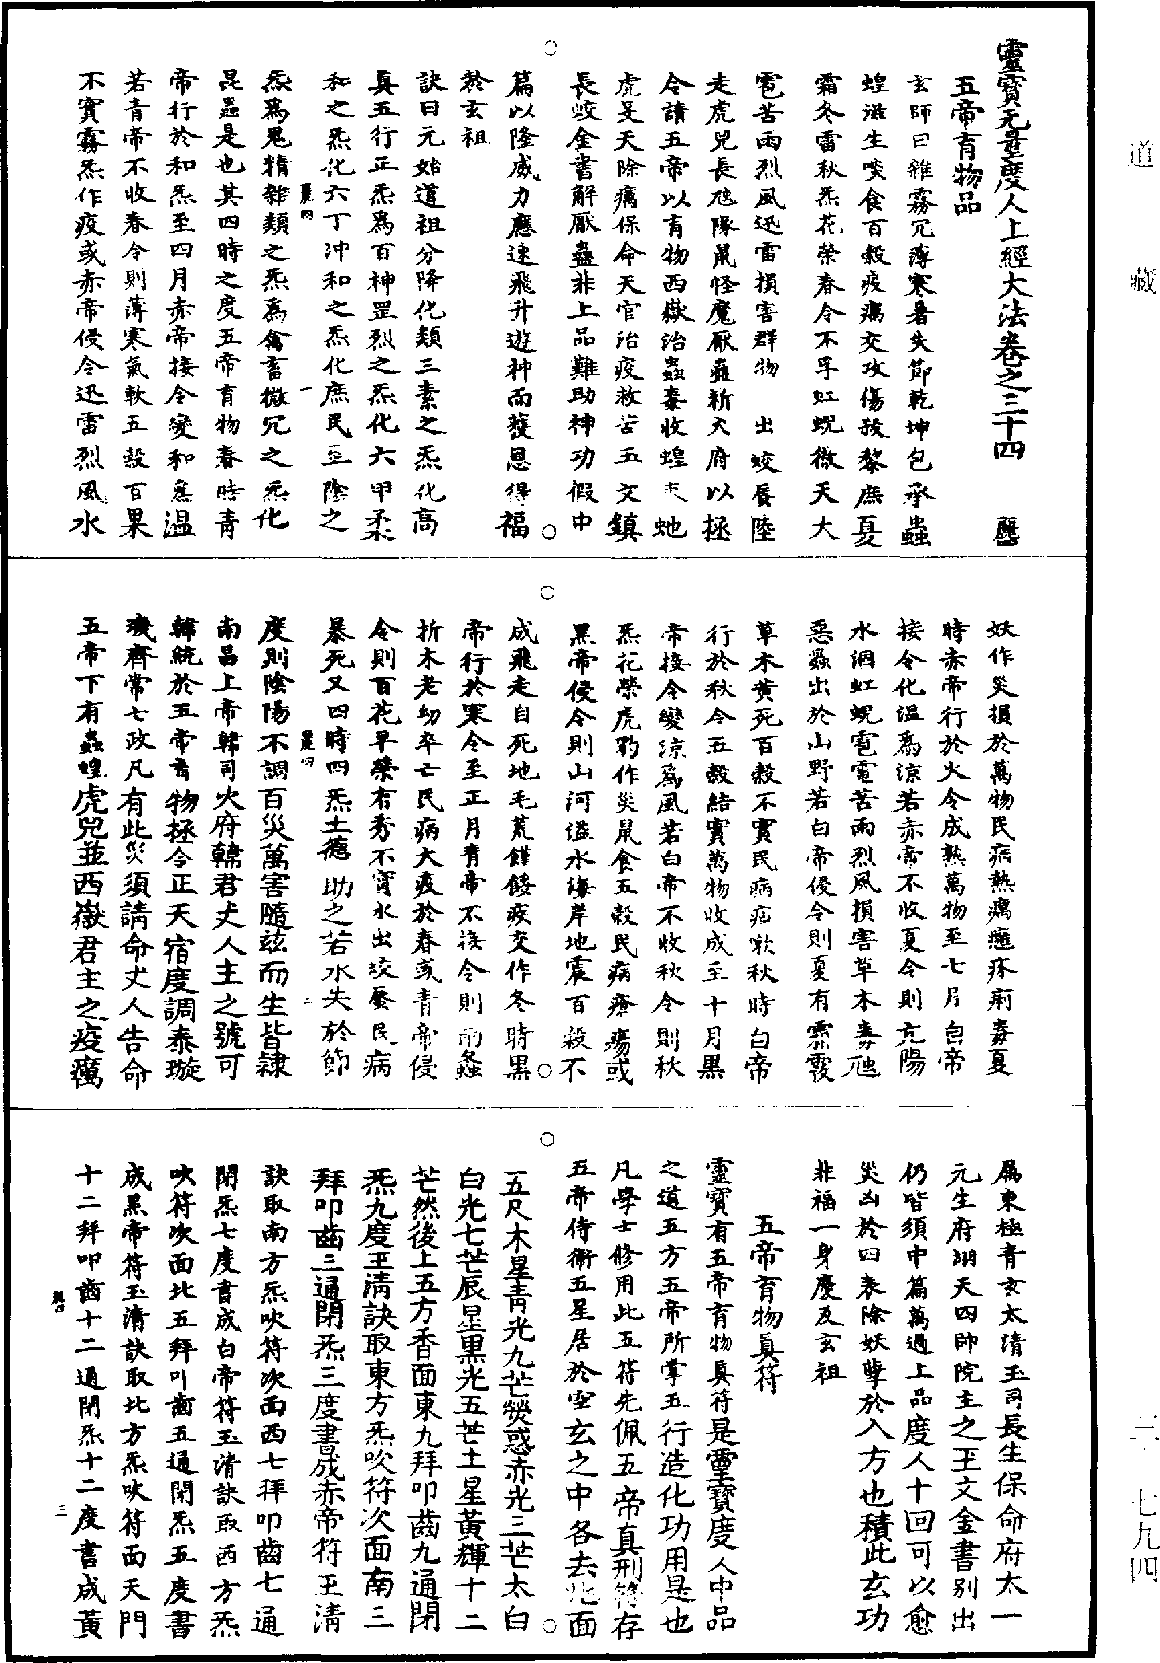 靈寶无量度人上經大法卷之三十四
五帝育物品
玄師曰雜霧冗薄寒暑失節乾坤包承蟲
蝗滋生啖食百穀疫癘交攻傷殘黎庶夏
霜冬雷秋炁花榮春令不孚虹蜺微天大
雹苦雨烈風迅雷損害群物 出蛟蜃陸
走虎兕長虺隊鼠怪魔厭蠱新大府以拯
令請五帝以育物西嶽治蟲毒收蝗 虵
虎旻天除癘保命天官治疫救苦五文鎮
長蛟金書解厭蠱非上品難助神功假中
篇以隆威力應速飛升遊神而獲恩得福
於玄祖
訣曰元始道祖分降化類三素之炁化高
真五行正炁爲百神罡烈之炁化六甲柔
和之炁化六丁沖和之炁化庶民至陰之
炁爲鬼精雜類之炁爲禽畜微冗之炁化
昆蟲是也其四時之度五帝育物春時青
帝行於和炁至四月赤帝接令變和爲温
若青帝不收春令則薄寒氣軟五穀百果
不實霧炁作疫或赤帝侵令迅雷烈風水
妖作災損於萬物民病熱癘瘧疥痢毒夏
時赤帝行於火令成熟萬物至七月白帝
接令化溫爲涼若赤帝不收夏令則亢陽
水涸虹蜺雹電苦雨烈風損害草木毒虺
惡蟲出於山野若白帝侵令則夏有霖霪
草木黄死百穀不實民病疟嗽秋時白帝
行於秋令五穀結實萬物收成至十月黑
帝接令變涼爲風若白帝不收秋令則秋
炁花榮虎豹作災鼠食五穀民病瘡瘍或
黑帝侵令則山河溢水海岸地震百穀不
成飛走自死地毛荒饉餧疾交作冬時黑
帝行於寒令至正月青帝不接令則雨䖝
折木老幼卒亡民病大疫於春或青帝侵
令則百花早榮有秀不實水出蛟蜃民病
暴死又四時四炁土德助之若水失於節
度則陰陽不調百災萬害隨玆而生皆隸
南昌上帝韓司火府韓君丈人主之號可
韓統於五帝育物極令正天宿度調泰璇
璣齊常七政凡有此災須請命丈人告命
五帝下有蟲蝗虎兕並西嶽君主之疫癘
屬東極青玄太清玉司長生保命府太一
元生府湖天四帥院主之玉文金書别出
仍皆須中篇萬過上品度人十回可以愈
災凶於四表除妖孽於入方也積此玄功
非福一身慶及玄祖
五帝育物真符
靈寶有五帝育物真符是靈寶度人中品
之道五方五帝所掌五行造化功用是也
凡學士修用此五符先佩五帝真刑符存
五帝侍衛五星居於空玄之中各去北面
一五尺木星青光九芒熒惑赤光三芒太白
白光七芒辰星黑光五芒土星黃輝十二
芒然後上五方香面東九拜叩齒九通閉
炁九度玉清訣取東方炁吹符次面南三
拜叩齒三通閉炁三度書成赤帝符玉清
訣取南方炁吹符次面西七拜叩齒七通
閉炁七度書成白帝符玉清訣取西方炁
吹符次面北五拜叩齒五通閉炁五度書
成黑帝符玉清訣取北方炁吹符面天門
十二拜叩齒十二通閉炁十二度書成黃
道藏
三·七九四